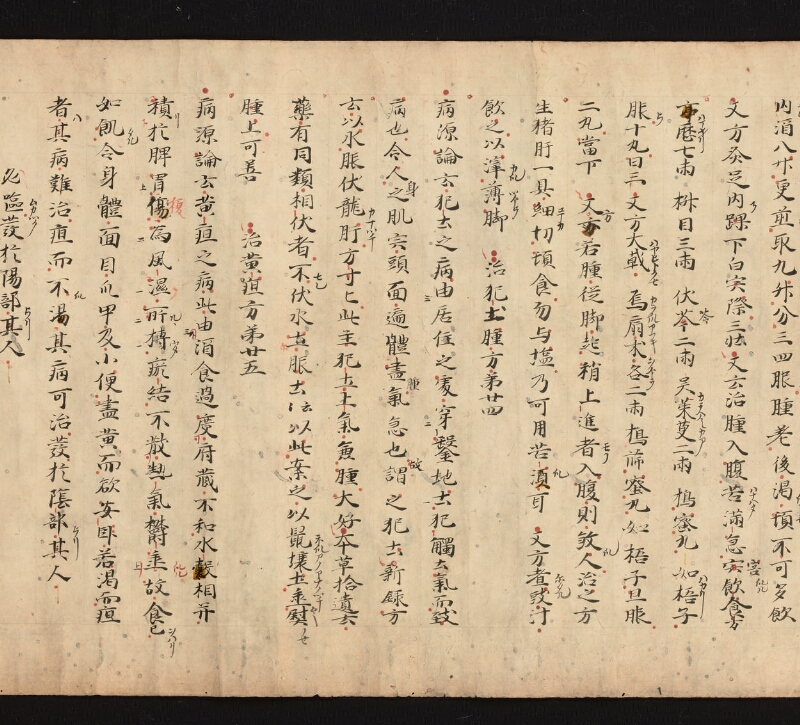 内消八升更煎取九升分三四服腫老後渇頓不可多飲
又方灸足内踝下白宍際三壮又云治腫入腹苦滿急宍飲食方
亭歴七兩 椒目三兩 伏苓二兩 吴茱萸二兩 搗蜜丸如梧子
服十九日三又方大戟 烏扇朮各二兩搗篩蜜丸如梧子旦服
二丸當下 又方若腫従脚起稍上進者入腹則煞人治之方
生猪肝一具細切頓食勿与塩乃可用苦酒耳 又方煮豉汁
飲之以滓薄脚 治犯土腫方第廿四
病源論云犯土之病由居住之處穿鑿地土犯觸土氣而致
病也令人之肌宍頭面遍體盡氣急也謂之犯土新録方
云以水服伏龍肝方寸匕此主犯土上氣魚腫大好本草拾遺云
藥有同類相伏者不伏水土服土法以此案之以鼠壤土垂熨
腫上可善 治黄疸方第廿五
病源論云黄疸之病此由酒食過度府蔵不和水穀相并
積於脾胃傷為風濕所搏瘀結不散熱氣欝蒸故食已
如飢令身體面目爪甲及小便盡黄而欲安卧若渇而疸
者其病難治疸而不渇其病可治發於陰部其人
必嘔發於陽部其人